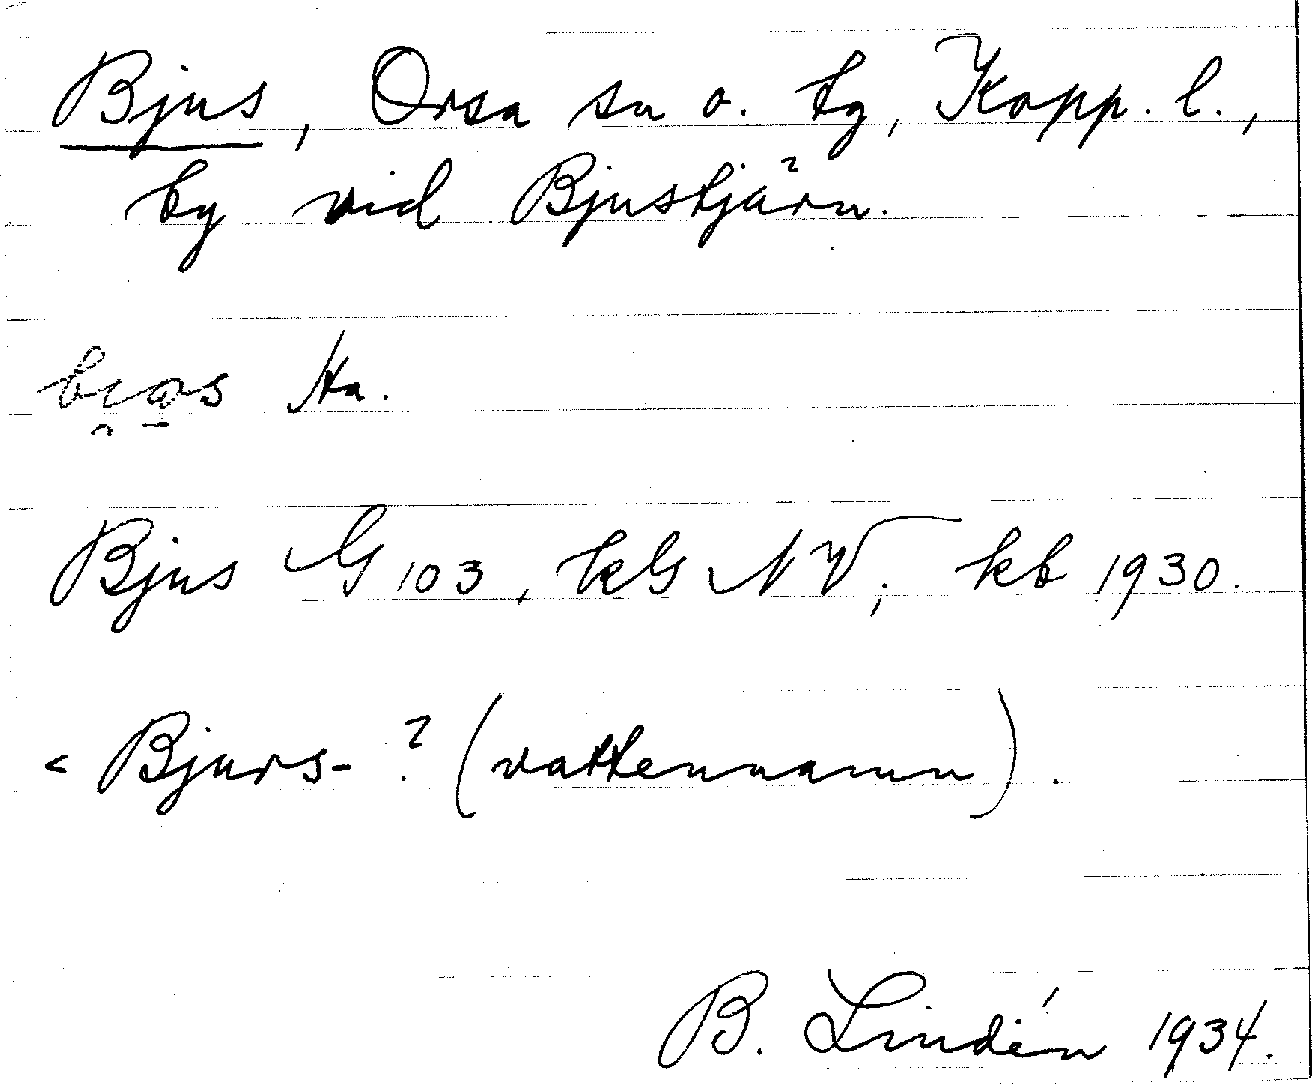 Bjus, Orsa sn o. tg, Kopp. l.,
by vid Bjustjärn.
Bjus G 103, kG NV; kb 1930.
< Bjurs- ? (vattennamn).
B. Lindén 1934.